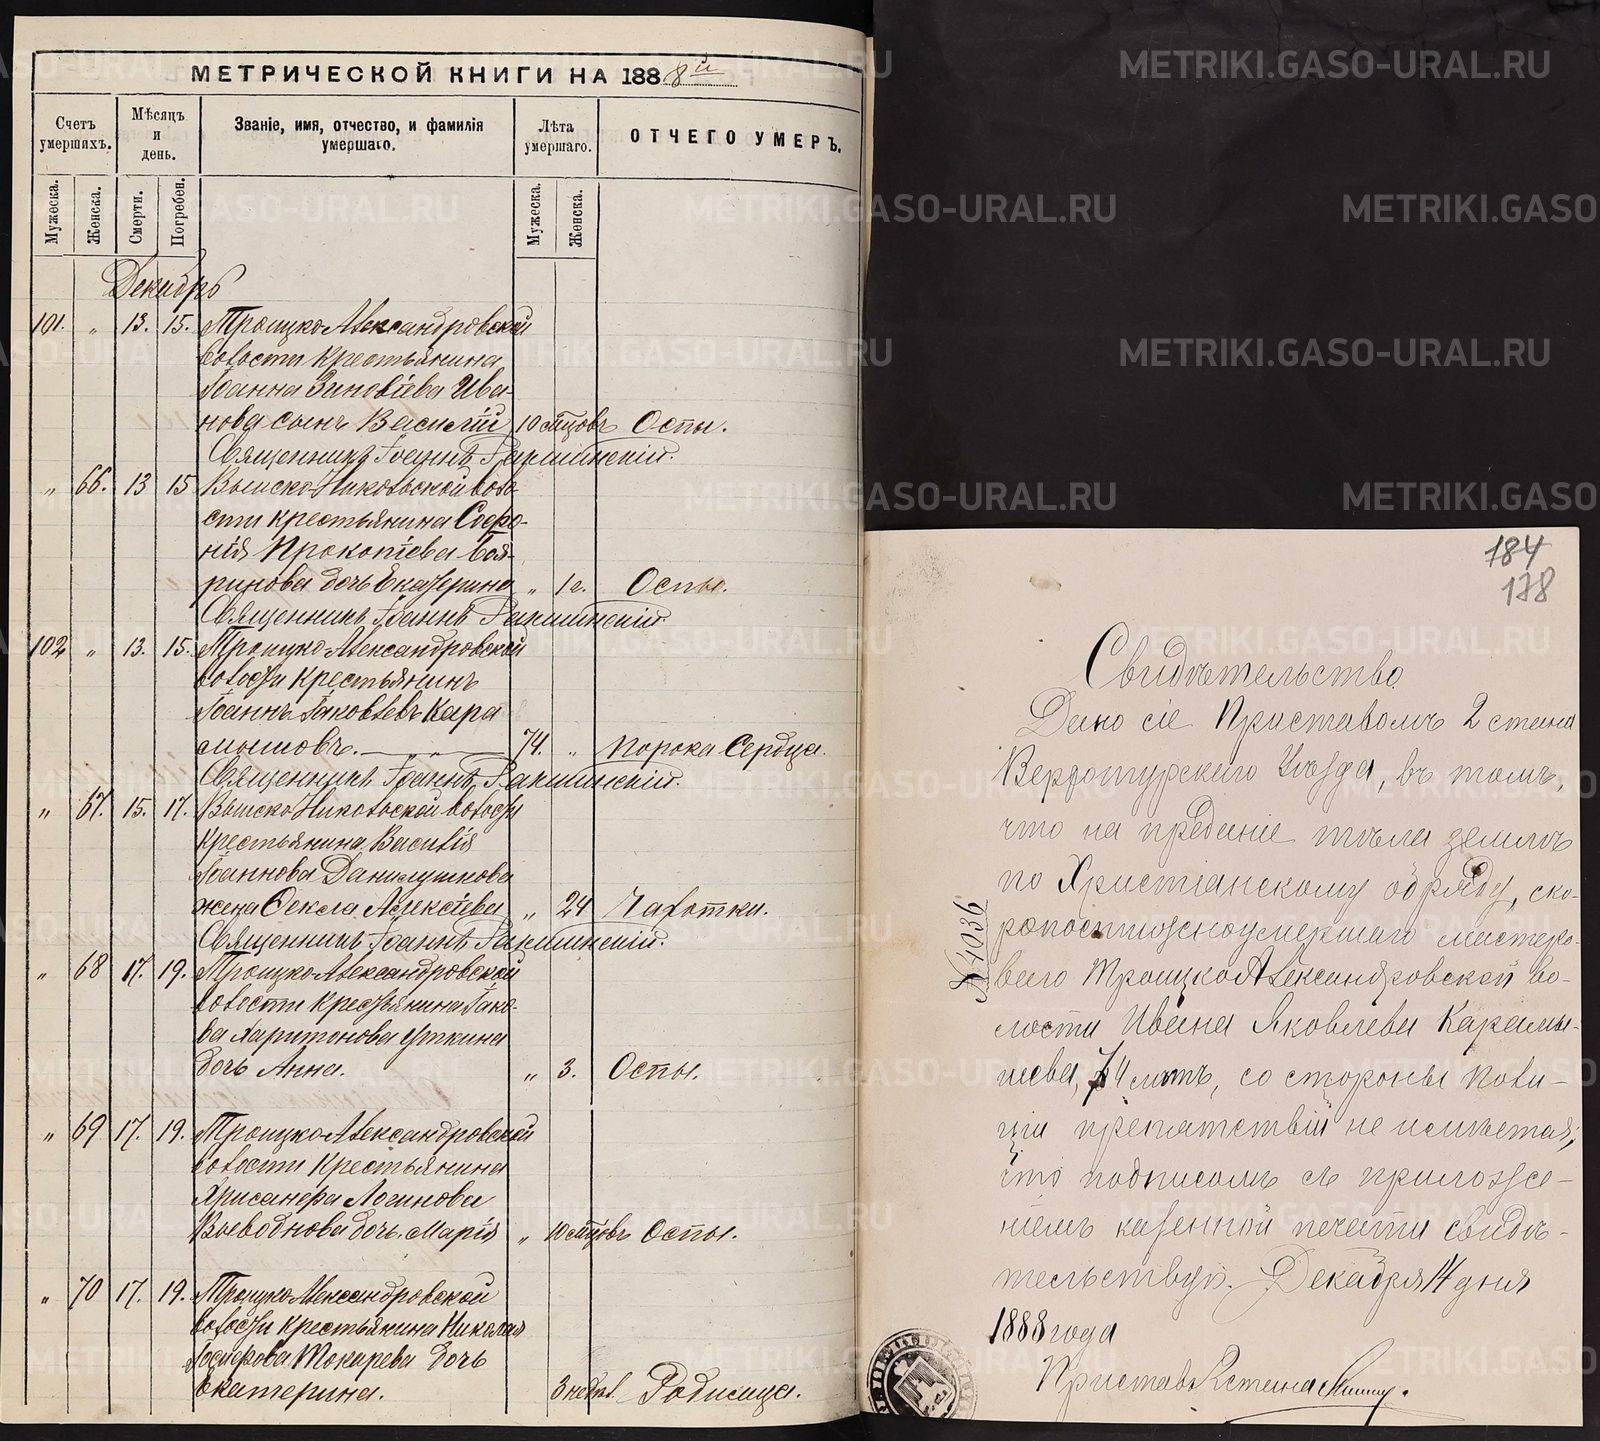 МЕТРИЧЕСКОЙ КНИГИ НА 1888й
Счетъ умершихъ.
Мѣсяцъ и день.
Званіе, имя, отчество, и фамилія умершаго.
Лѣта умершаго.
ОТЧЕГО УМЕРЪ.
Мужеска. Женска. Смерти. Погребен. Мужеска. Женска.
Декабрь
101. „ 13. 15. Троицко Александровской
волости крестьянина
Іоанна Зиновіева Ива-
нова сынъ Василій 10 мѣцовъ Оспы.
Священникъ Іоаннъ
„ 66. 13 15 Выйско-Никольской воло-
сти крестьянина Софро-
нія Прокопіева Боя-
ринова дочь Екатерина „ 1 г. Оспы.
Священникъ Іоаннъ
102 „ 13. 15. Троицко Александровской
волости крестьянинъ
Іоаннъ Іаковлевъ Кара
мышовъ. 74. „ Порока Сердца.
Священникъ Іоаннъ
„ 67. 15. 17. Выйско Никольской волости
крестьянина Василія
Іоаннова Данилушкова
жена Фекла Алексіева „ 24 Чахотки.
Священникъ Іоаннъ
„ 68 17. 19. Троицко Александровской
волости крестьянина Іако-
ва Харитонова Уткина
дочь Анна. „ 3. Оспы.
„ 69 17. 19. Троицко Александровской
волости крестьянина
Хрисанфа Логинова
Воеводкова дочь Марія „ 10 мѣцовъ Оспы.
„ 70 17. 19. Троицко Александровской
волости крестьянина Николая
Іосифова Токарева дочь
Екатерина. 3 недѣл. Родимца.
184
178
Свидѣтельство
Дано сіе Приставомъ 2 стана
Верхотурскаго Уѣзда, въ томъ,
что на преданіе тѣла землѣ
по Христіанскому обряду, ско-
ропостижноумершаго мастеро-
ваго Троицко Александровской во-
лости Ивана Яковлева Карамы-
шева, 74 лѣтъ, со стороны поли-
ціи препятствій не имѣется,
что подписомъ съ приложе-
ніемъ казенной печати свидѣ-
тельствую. Декабря 14 дня
1888 года
Приставъ 2 стана
№ 4036
METRIKI.GASO-URAL.RU